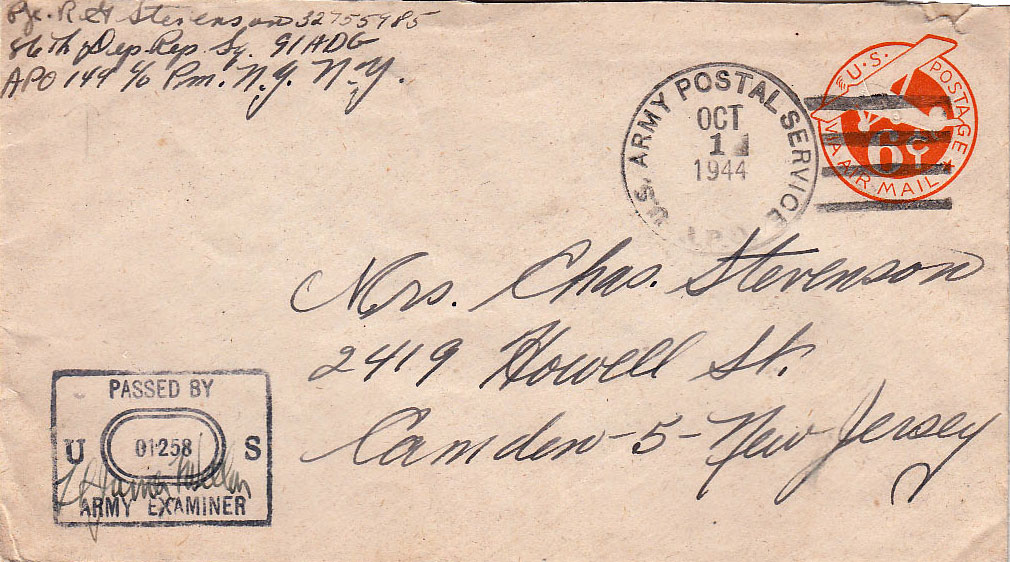 Pfc. R H Stevenson 32755985
86th Dep. Rep. Sq. 91 ADG
APO 149 c/o Pm. N.Y. N.Y.
U.S. ARMY POSTAL SERVICE
OCT
1
1944
A.P.O.
U.S. POSTAGE
6¢
VIA AIR MAIL
Mrs. Chas. Stevenson
2419 Howell St.
Camden-5-New Jersey
PASSED BY
U 01258 S
ARMY EXAMINER